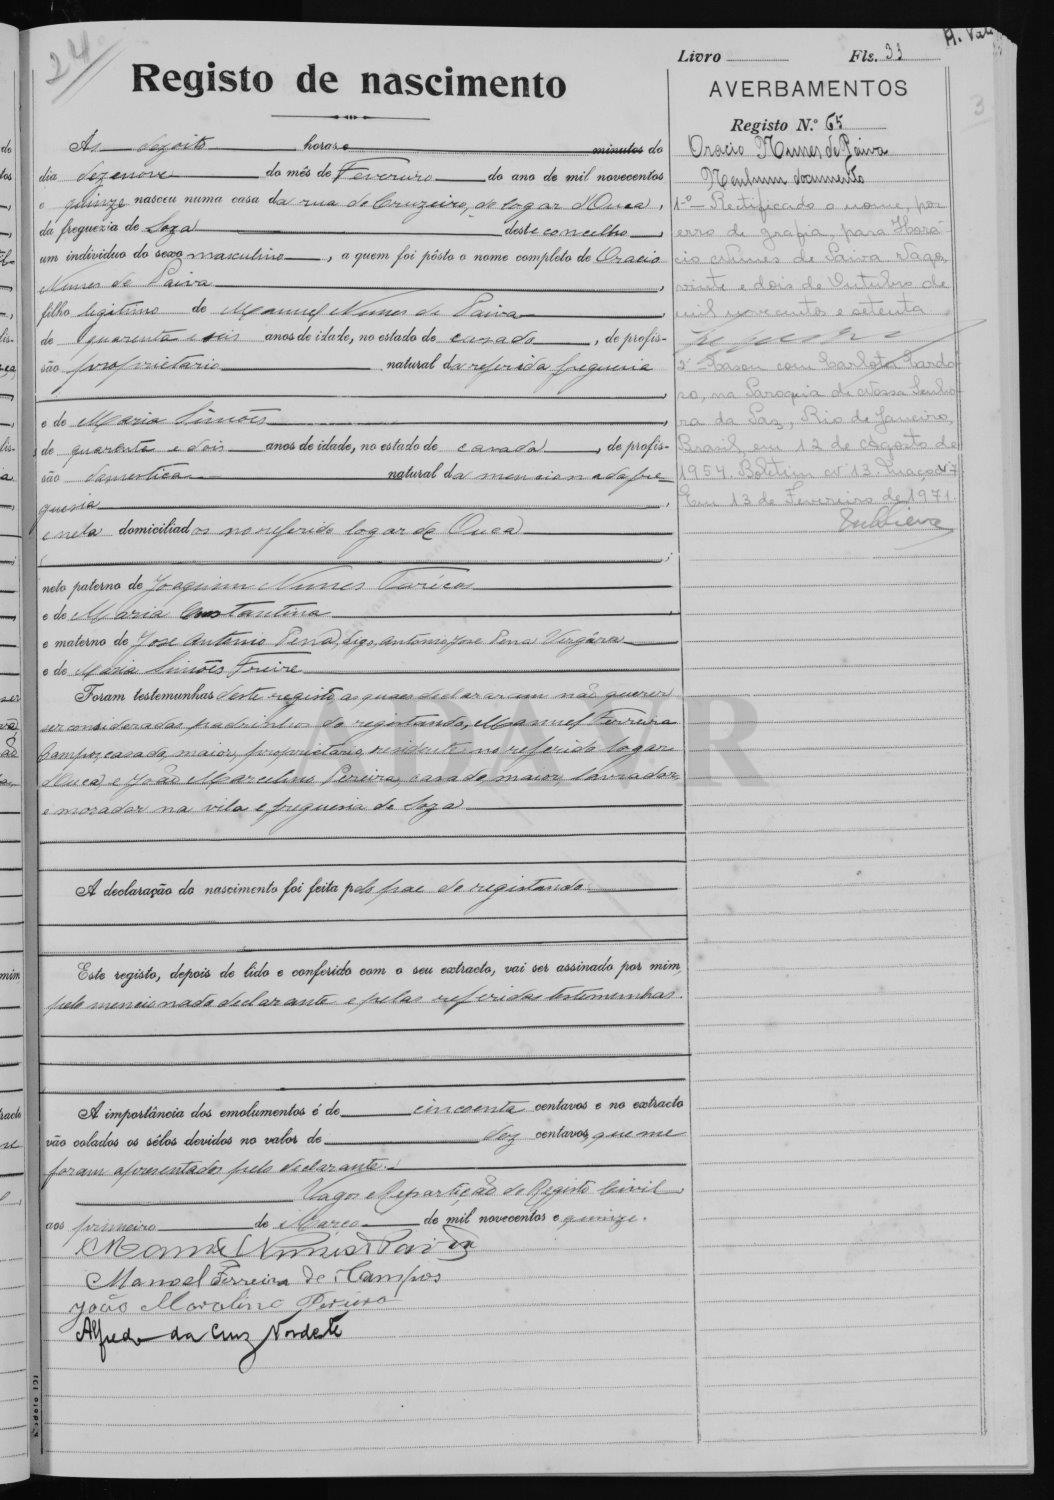 24
Livro Fls. 33
Registo de nascimento
AVERBAMENTOS
Registo N.º 65
Oracio Nunes de Paiva
Nenhum documento
1º - Rectificado o nome, por
erro de grafia, para Horá-
cio Nunes de Paiva. Vagos,
vinte e dois de Outubro de
mil novecentos e setenta
2º - Casou com Carlota Cardo-
so, na Paroquia de Nossa Senho-
ra da Paz, Rio de Janeiro,
Brasil, em 12 de Agosto de
1954. Boletim nº 13. Maço nº 7
Em 13 de Fevereiro de 1971.
3
Às dezoito horas e minutos do
dia dezenove do mês de Fevereiro do ano de mil novecentos
e quinze nasceu numa casa da rua do Cruzeiro, do logar d'Ouca,
da freguezia de Soza deste concelho,
um individuo do sexo masculino, a quem foi pôsto o nome completo de Oracio
Nunes de Paiva,
filho legitimo de Manuel Nunes de Paiva,
de quarenta e seis anos de idade, no estado de casado, de profis-
são proprietario natural da referida freguesia
e de Maria Simões,
de quarenta e dois anos de idade, no estado de casada, de profis-
são domestica natural da mencionada fre
guesia,
e nela domiciliados no referido logar de Ouca
neto paterno de Joaquim Nunes
e de Maria Constantina,
e materno de José Antonio Pena, digo, Antonio José Pena Vergára
e de Maria Simões Freire
Foram testemunhas deste registo as quaes declararam não querer
ser consideradas padrinhos do registando, Manuel Ferreira
Campos, casado, maior, proprietario, residente no referido logar
d'Ouca, e João Marcelino Pereira, casado, maior, lavrador,
e morador na vila e freguesia de Soza
ADAVR
A declaração do nascimento foi feita pelo pae do registando
Este registo, depois de lido e conferido com o seu extracto, vai ser assinado por mim,
pelo mencionado declarante e pelas referidas testemunhas.
A importância dos emolumentos é de cincoenta centavos e no extracto
vão colados os sêlos devidos no valor de dez centavos, que me
foram apresentados pelo declarante.
Vagos e Repartição do Registo Civil
aos primeiro de Março de mil novecentos e quinze.
Manuel Nunes de Paiva
Manoel Ferreira de Campos
João Marcelino Pereira
Alfredo da Cruz Nordeste